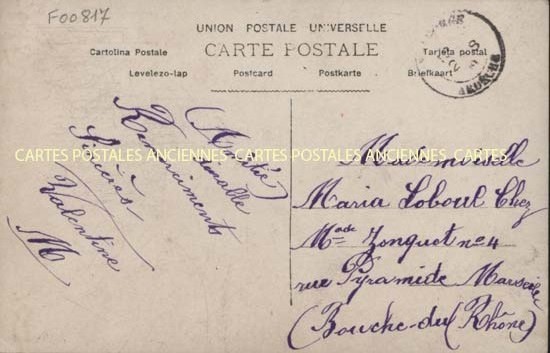 F00817
UNION POSTALE UNIVERSELLE
CARTE POSTALE
Cartolina Postale
Tarjeta postal
Levelezo-lap
Postcard
Postkarte
Briefkaart
ARDÈCHE
CARTES POSTALES ANCIENNES - CARTES POSTALES ANCIENNES - CARTES POSTALES ANCIENNES
(Amitié)
Remerciments
Sincères
Valentine
M
Mademoiselle
Maria Loboul Chez
Made Zonquet no 4
rue Pyramide Marseille
(Bouche-du Rhône)